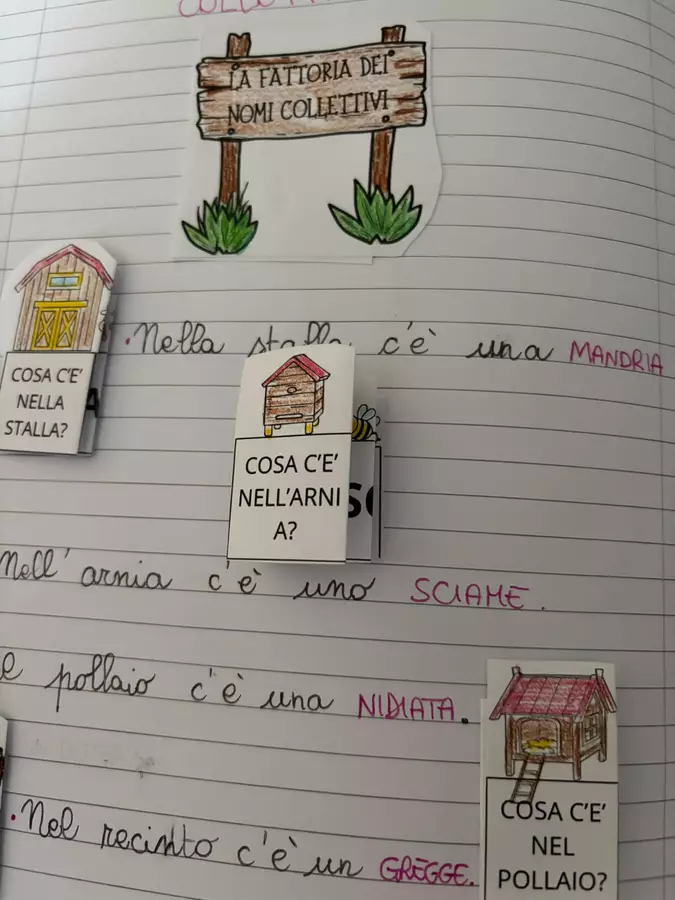 LA FATTORIA DEI
NOMI COLLETTIVI
• Nella stalla c'è una MANDRIA
COSA C'E'
NELLA
STALLA?
COSA C'E'
NELL'ARNI
A?
Nell'arnia c'è uno SCIAME.
pollaio c'è una NIDIATA.
• Nel recinto c'è un GREGGE.
COSA C'E'
NEL
POLLAIO?